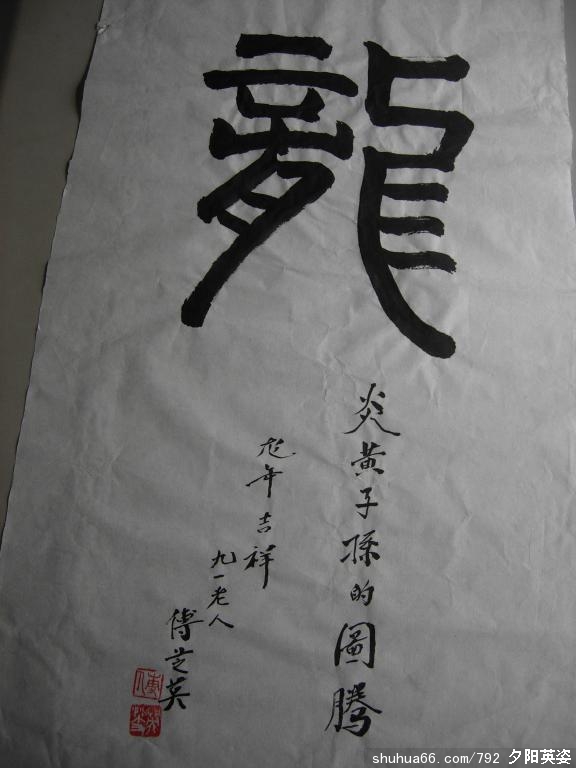 龍
炎黄子孫的圖騰
龙年吉祥
九一老人
傅芝英
shuhua66.com/792 夕阳英姿